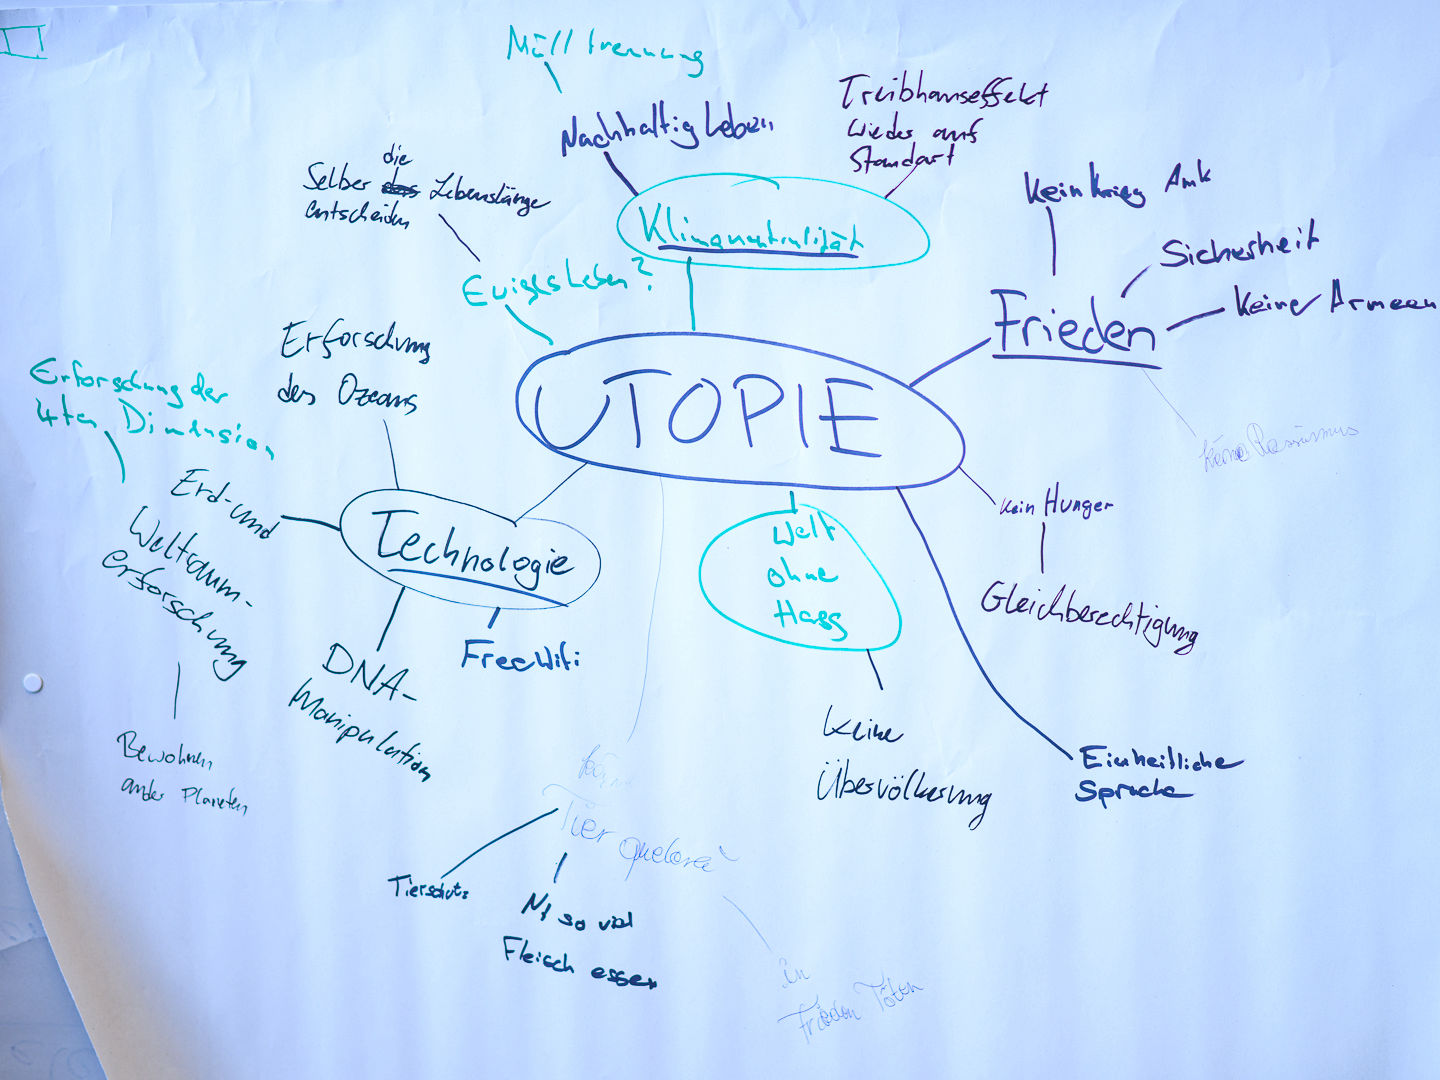 Mülltrennung
Nachhaltig Leben
Treibhauseffekt
wieder auf
Standart
die
Selber das Lebenslänge
entscheiden
Klimaneutralität
Kein Krieg Amk
Sicherheit
Keine Armeen
Frieden
keine Rassismus
Ewiges Leben?
Erforschung
des Ozeans
Erforschung der
4ten Dimension
UTOPIE
Erd- und
Weltraum-
erforschung
Technologie
Welt
ohne
Hass
kein Hunger
Gleichberechtigung
Free Wifi
DNA-
Manipulation
Bewohnen
ander Planeten
Keine
Übervölkerung
Einheitliche
Sprache
Tier quelerei
Tierschutz
Nt so viel
Fleisch essen
in
Frieden Töten